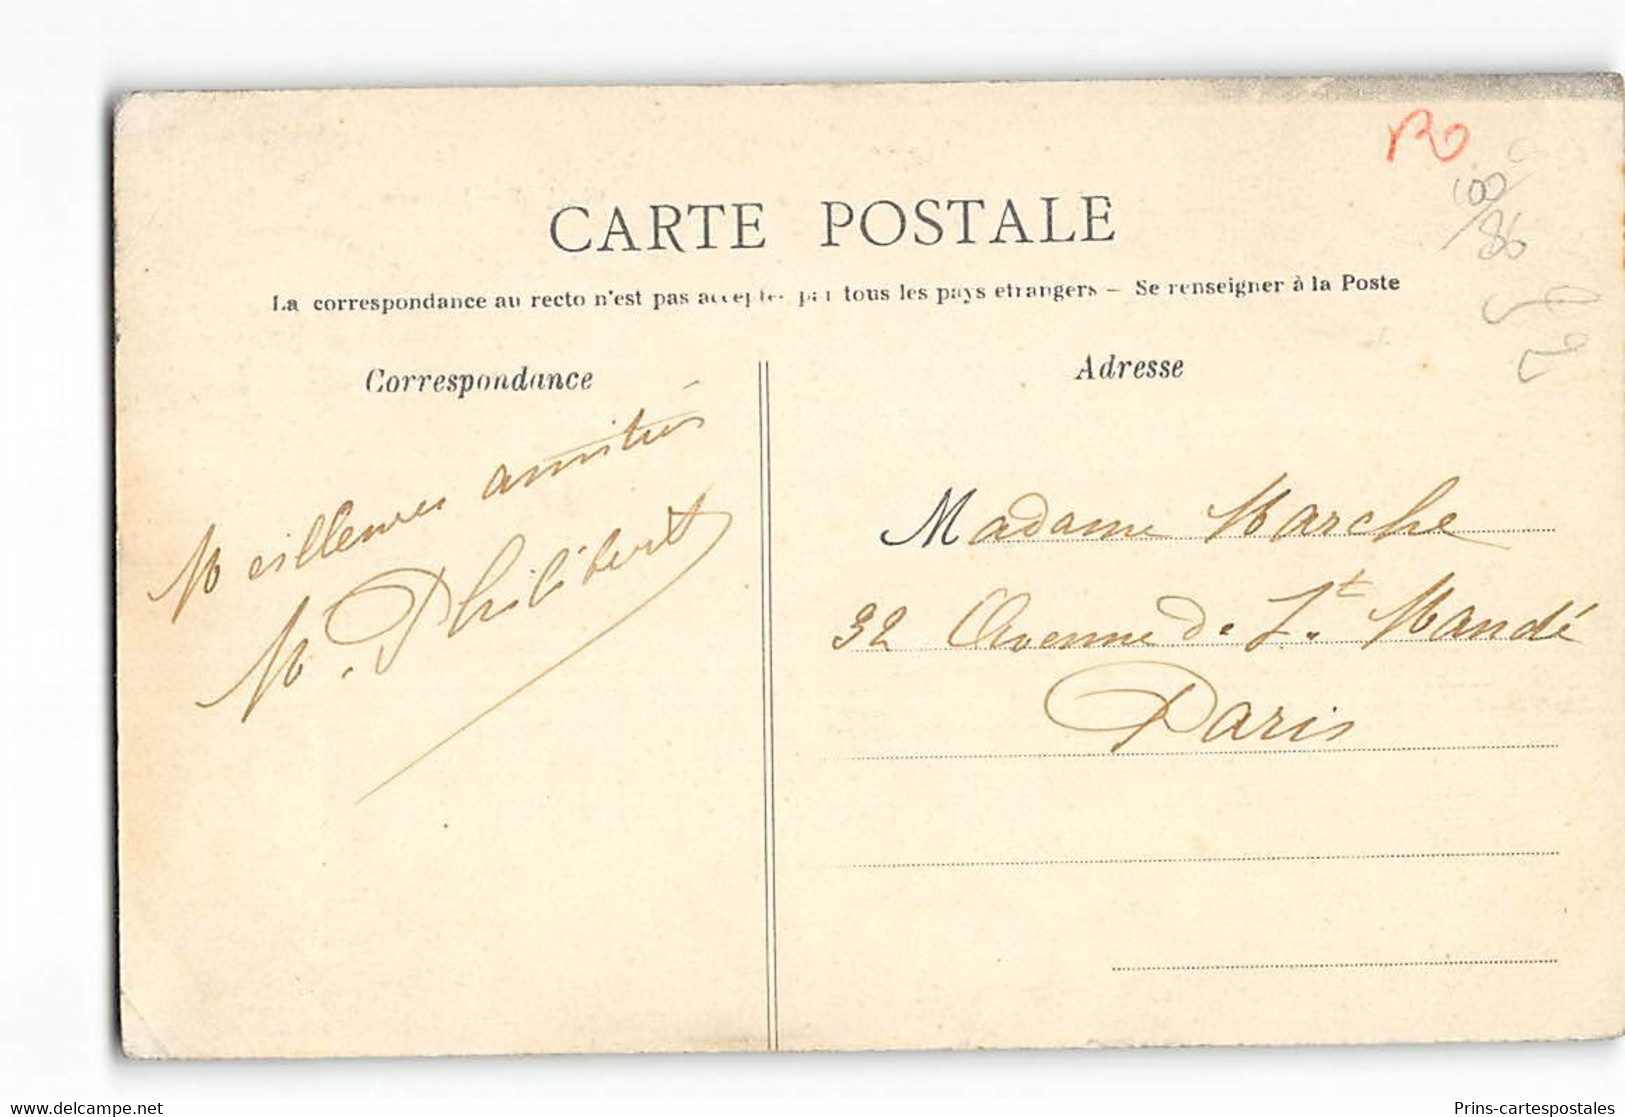 CARTE POSTALE
La correspondance au recto n'est pas acceptée par tous les pays etrangers — Se renseigner à la Poste
Correspondance
Meilleures amitiés
M. Philibert
Adresse
Madame Marche
32 Avenue de St. Mandé
Paris
100/86
www.delcampe.net
Prins-cartespostales